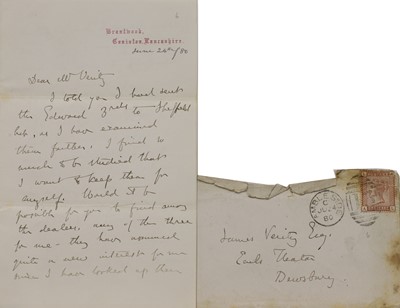 Brantwood,
Coniston, Lancashire.
June 24th/80
Dear Mr Verity
I told you I had sent
this Edward 3rds to Sheffield
but, as I have examined
them farther, I find so
much to be that
I want to keep them for
myself. Would it be
possible for you to find among
the dealers, any of this three
for me - they have assumed
quite a new interest for me
I have looked up them
James Verity Esq.
Earls Heaton
Dewsbury